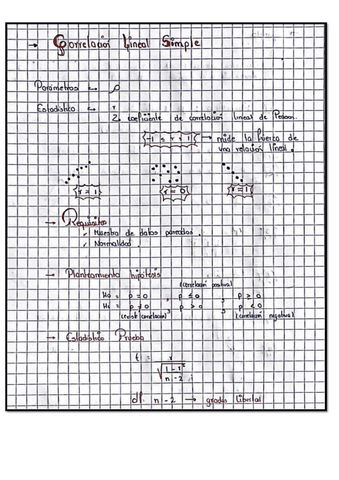 → Correlación Lineal Simple
Parámetros ← ρ
Estadístico ← r
2 coeficiente de correlación lineal de Pearson.
-1 ≤ r ≤ 1 → mide la fuerza de
una relación lineal.
r = 1 r = 0 r = 1
→ Requisitos
Muestra de datos pareados.
Normalidad.
→ Planteamiento hipótesis
(correlación positiva)
H0 = ρ = 0 , ρ ≤ 0 , ρ ≥ 0
H1 = ρ ≠ 0 , ρ > 0 , ρ < 0
(exist correlación) (correlación negativa)
→ Estadístico Prueba
t = r / √((1 - r²) / (n - 2))
df. n - 2 → grados libertad